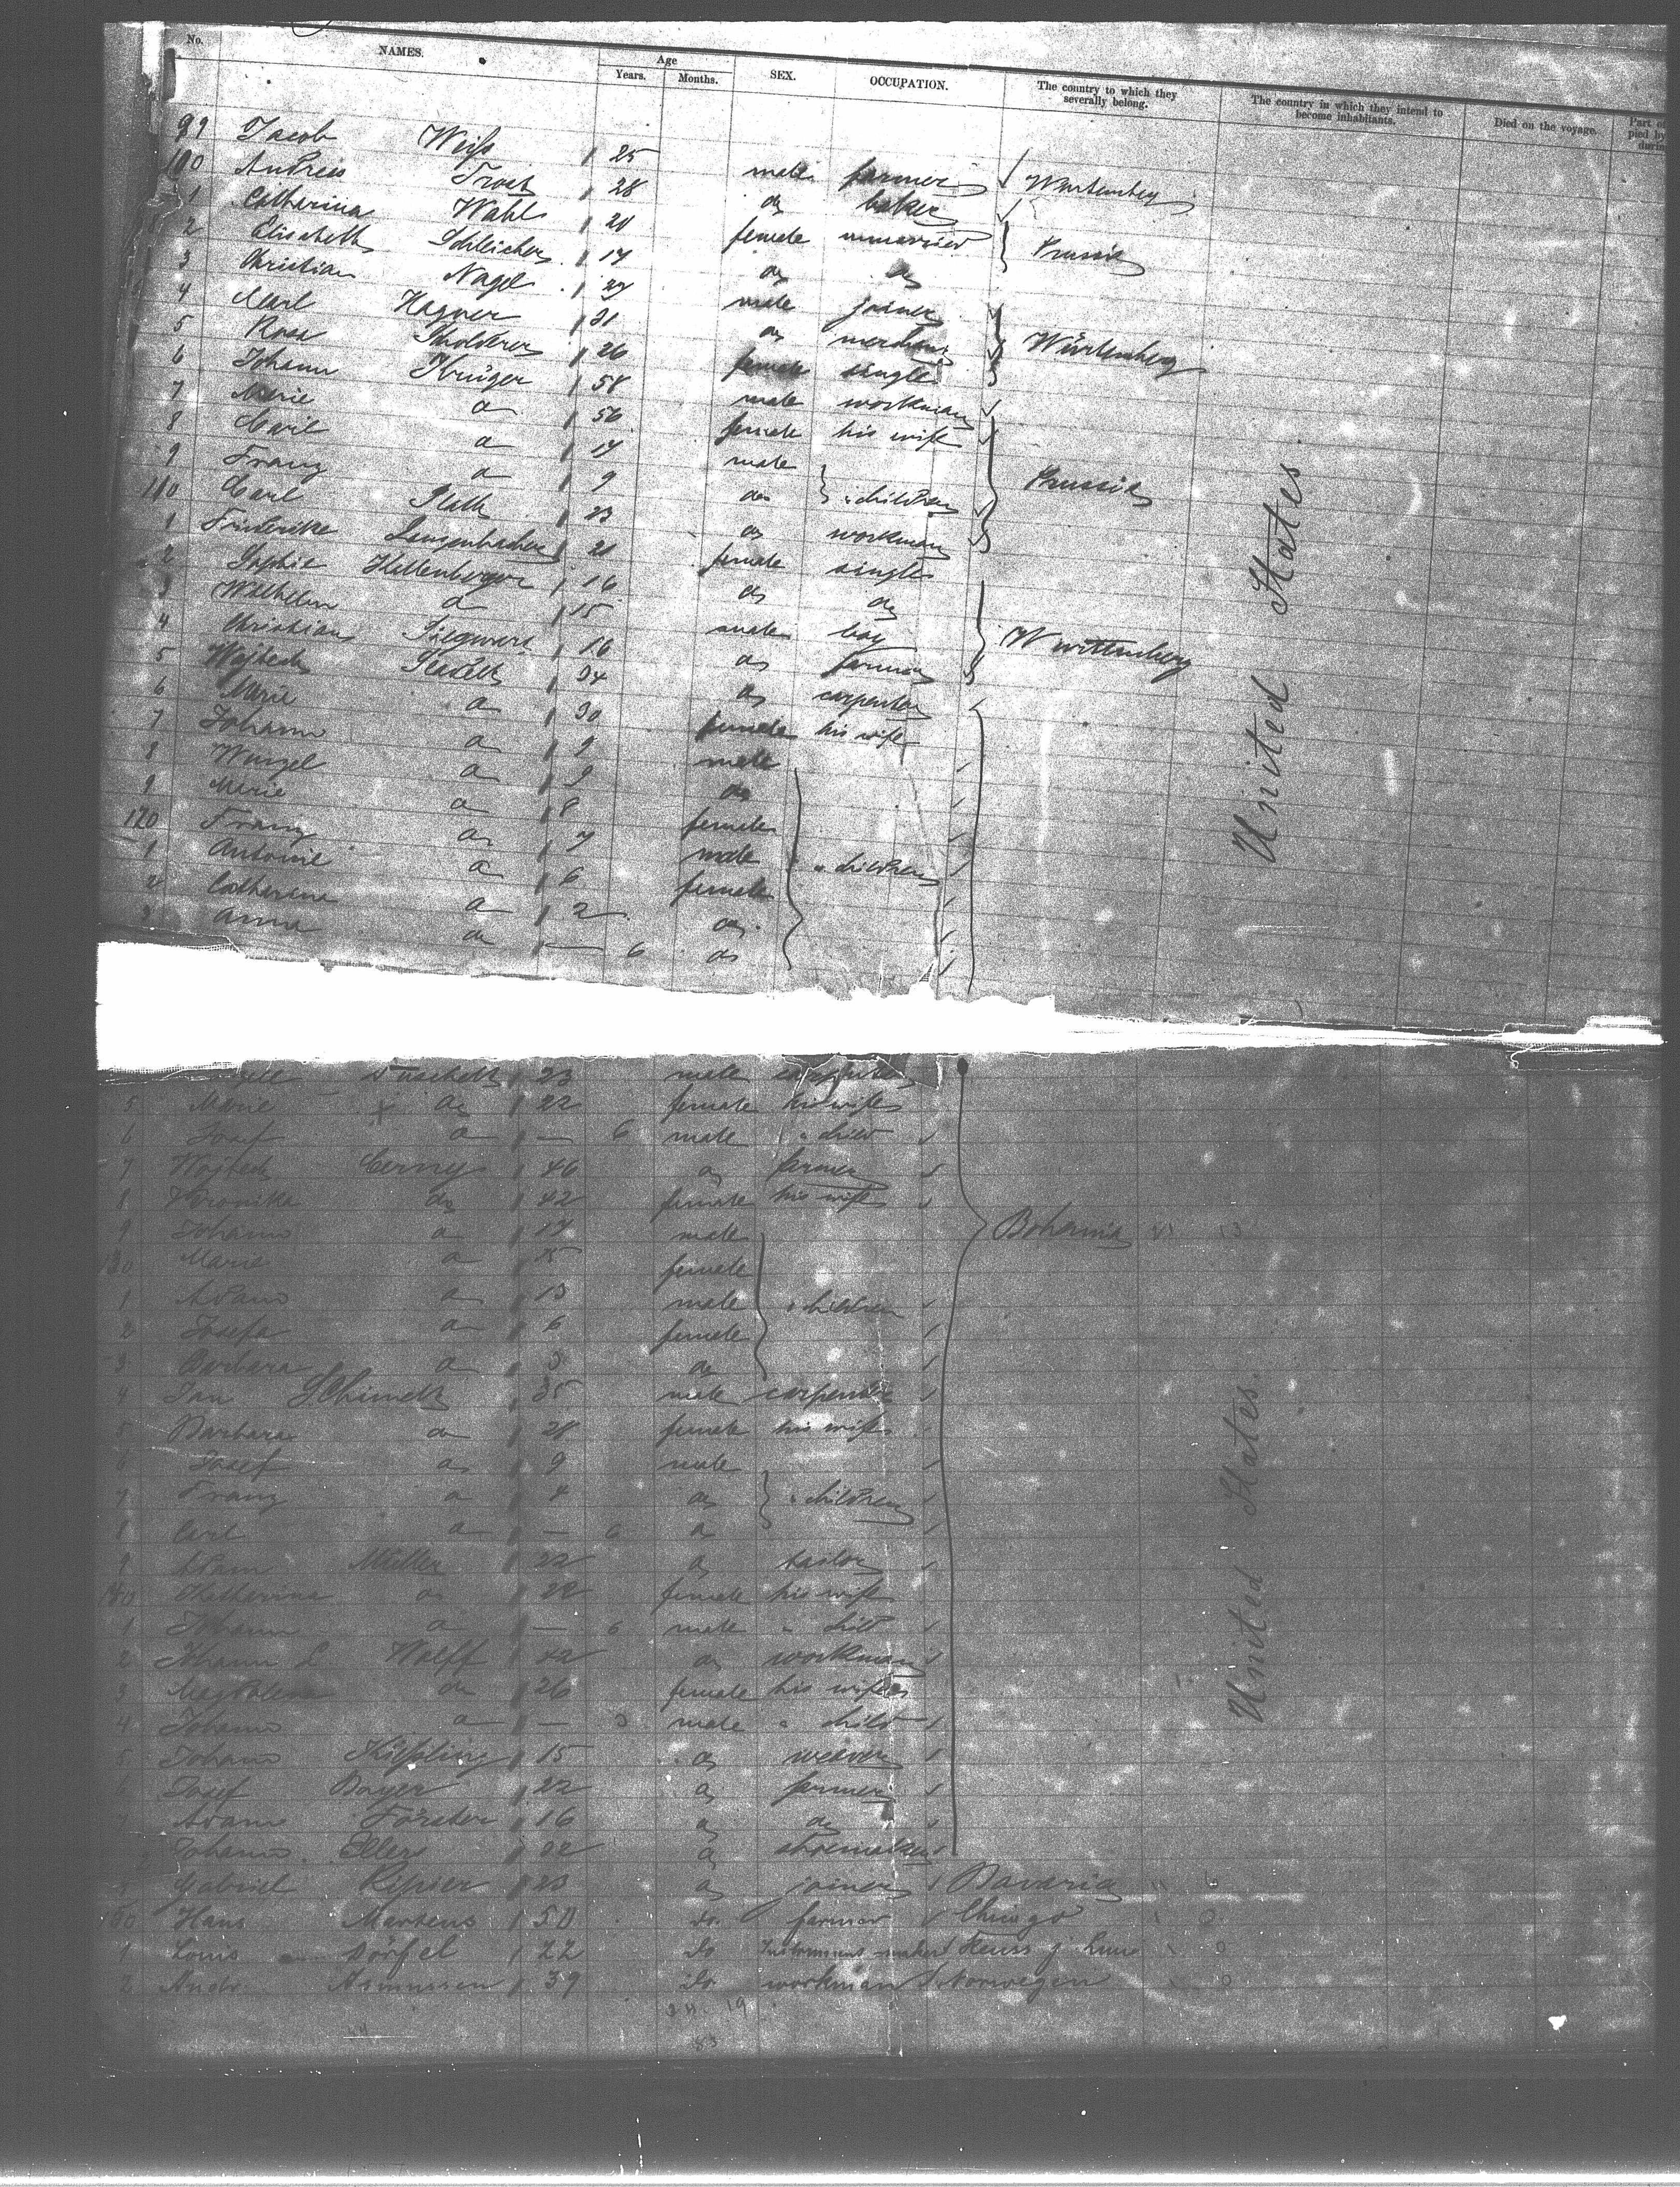 No. NAMES. Age Years. Months. SEX. OCCUPATION. The country to which they severally belong. The country in which they intend to become inhabitants. Died on the voyage. Part of
99 Jacob Weiss 25 male farmer Wurtemberg
100 Andreas Trost 28 do baker
1 Catharina Wahl 20 female unmarried Prussia
2 Elisabeth Schleicher 17 do do
3 Christian Nagel male joiner
4 Carl Hagner 31 do merchant Würtemberg
5 Rosa 26 female single
6 Johann Krüger 58 male workman
7 Marie do 56 female his wife
8 Carl do 17 male
9 Franz do 9 do " children Prussia
110 Carl Plath 23 do workman
1 Friderike Langenbacher 21 female single
2 Sophie Hellenberger 16 do do
3 Wilhelm do 15 male boy
4 Christian Siegwart 16 do farmer Wurttemberg
5 Wojtech 34 do carpenter
6 Marie do 30 female his wife
7 Johann do 9 male
8 Wenzel do 9 do
9 Marie do 8 female
120 Franz do 7 male " children
1 Antonie do 6 female
2 Catharina do 2 do
3 Anna do — 6 do
United States
23 male carpenter
5 Marie do 22 female his wife
6 Josef do — 6 male " child
7 Wojtech Cerny 46 do farmer
8 Veronika do 42 female his wife
9 Johann do 17 male Bohemia
130 Marie do 15 female
1 Adam do 13 male " children
2 Josefa do 6 female
3 Barbara do 3 do
4 Jan Schimek 35 male carpenter
5 Barbara do 28 female his wife
6 Josef do 9 male
7 Franz do 4 do " children
8 Carl do — 6 do
9 Adam Müller 22 do tailor
140 Katharina do 22 female his wife
1 Johann do — 6 male " child
2 Johann L Wolff 42 do workman
3 Magdalena do 26 female his wife
4 Johann do — 3 male " child
5 Johann 15 do weaver
6 Josef Bayer 22 do farmer
7 Adam Förster 16 do do
Johann Eller do shoemaker
9 Gabriel 23 do joiner Bavaria
150 Hans Martens 50 Do. farmer Chicago
1 Louis Dörfel 22 Do Instrument-maker
2 Andr. Asmussen 39 Do. workman Norwegen
United States.